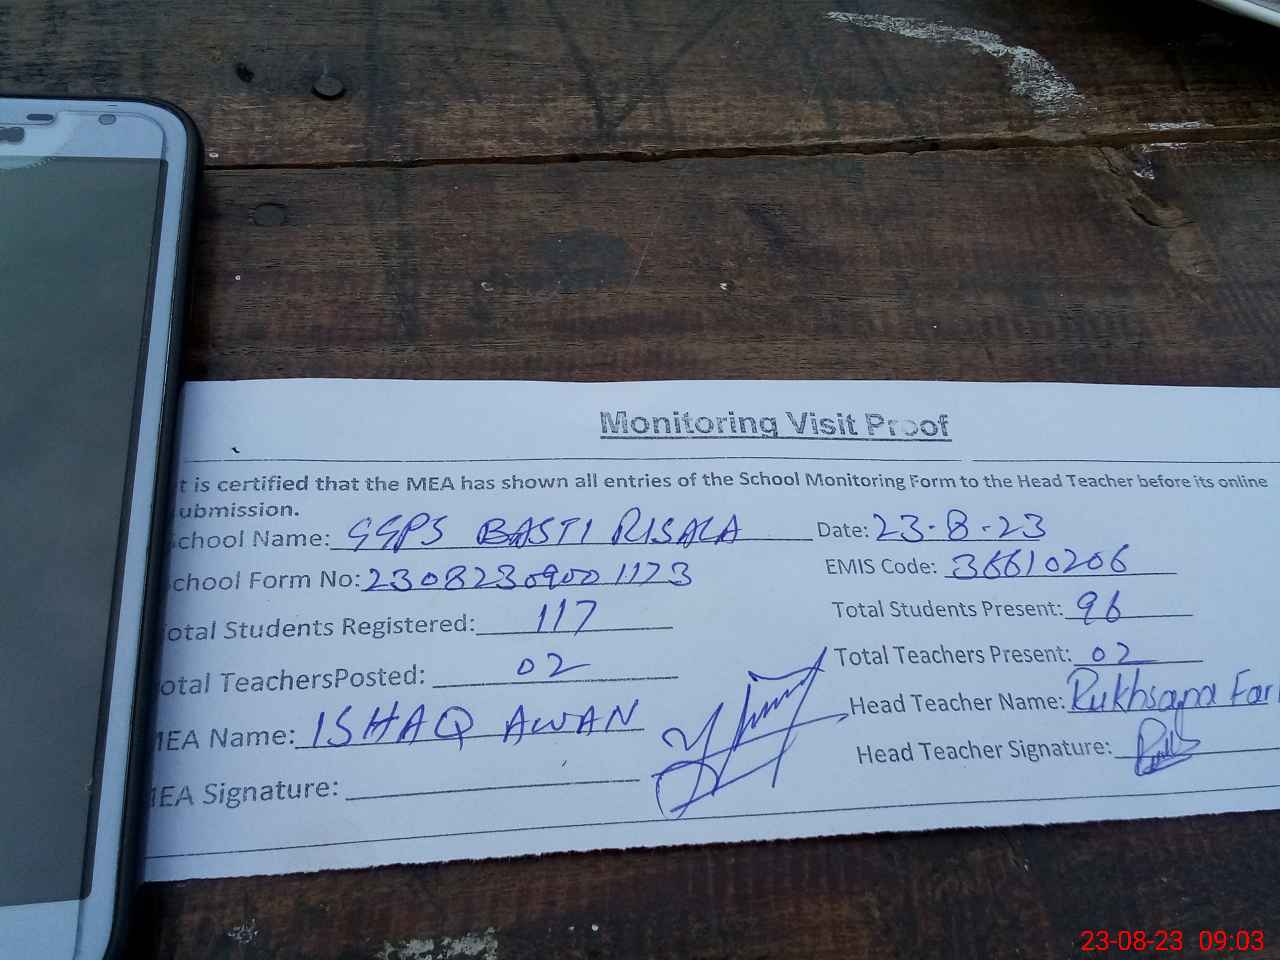 Monitoring Visit Proof
t is certified that the MEA has shown all entries of the School Monitoring Form to the Head Teacher before its online
ubmission.
chool Name: GGPS BASTI RISALA Date: 23-8-23
chool Form No: EMIS Code: 36610206
otal Students Registered: 117 Total Students Present: 96
otal TeachersPosted: 02 Total Teachers Present: 02
MEA Name: ISHAQ AWAN Head Teacher Name: Rukhsana Far
MEA Signature: Head Teacher Signature:
23-08-23 09:03